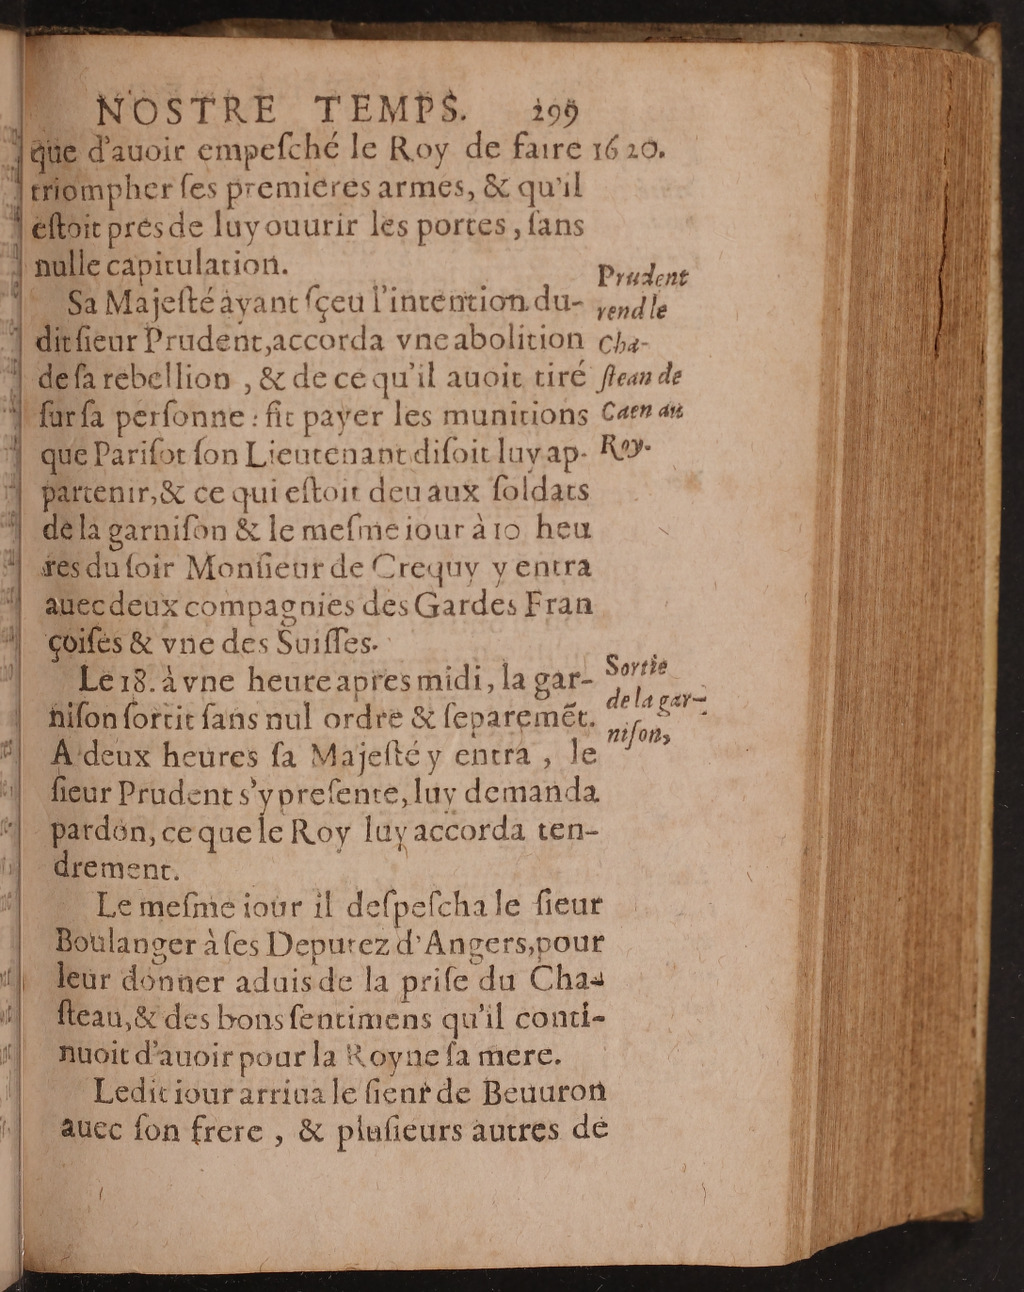 NOSTRE TEMPS. 299
que d'auoir empeſché le Roy de faire 1620.
triompher ſes premieres armes, & qu'il
eſtoit prés de luy ouurir les portes, ſans
nulle capitulation.
Sa Majeſté ayant ſçeu l'intention du-
dit ſieur Prudent, accorda vne abolition
de ſa rebellion, & de ce qu'il auoit tiré
ſur ſa perſonne: fit payer les munitions
que Pariſot ſon Lieutenant diſoit luy ap-
partenir, & ce qui eſtoit deu aux ſoldats
de la garniſon & le meſme iour à 10 heu
res du ſoir Monſieur de Crequy y entra
auec deux compagnies des Gardes Fran
çoiſes & vne des Suiſſes.
Prudent
rend le
Cha-
ſteau de
Caen au
Roy.
Le 18. à vne heure apres midi, la gar-
niſon ſortit ſans nul ordre & ſeparemẽt.
A deux heures ſa Majeſté y entra, le
ſieur Prudent s'y preſente, luy demanda
pardon, ce que le Roy luy accorda ten-
drement.
Sortie
de la gar-
niſon,
Le meſme iour il deſpeſcha le ſieur
Boulanger à ſes Deputez d'Angers, pour
leur donner aduis de la priſe du Cha-
ſteau, & des bons ſentimens qu'il conti-
nuoit d'auoir pour la Royne ſa mere.
Ledit iour arriua le ſieur de Beuuron
auec ſon frere, & pluſieurs autres de